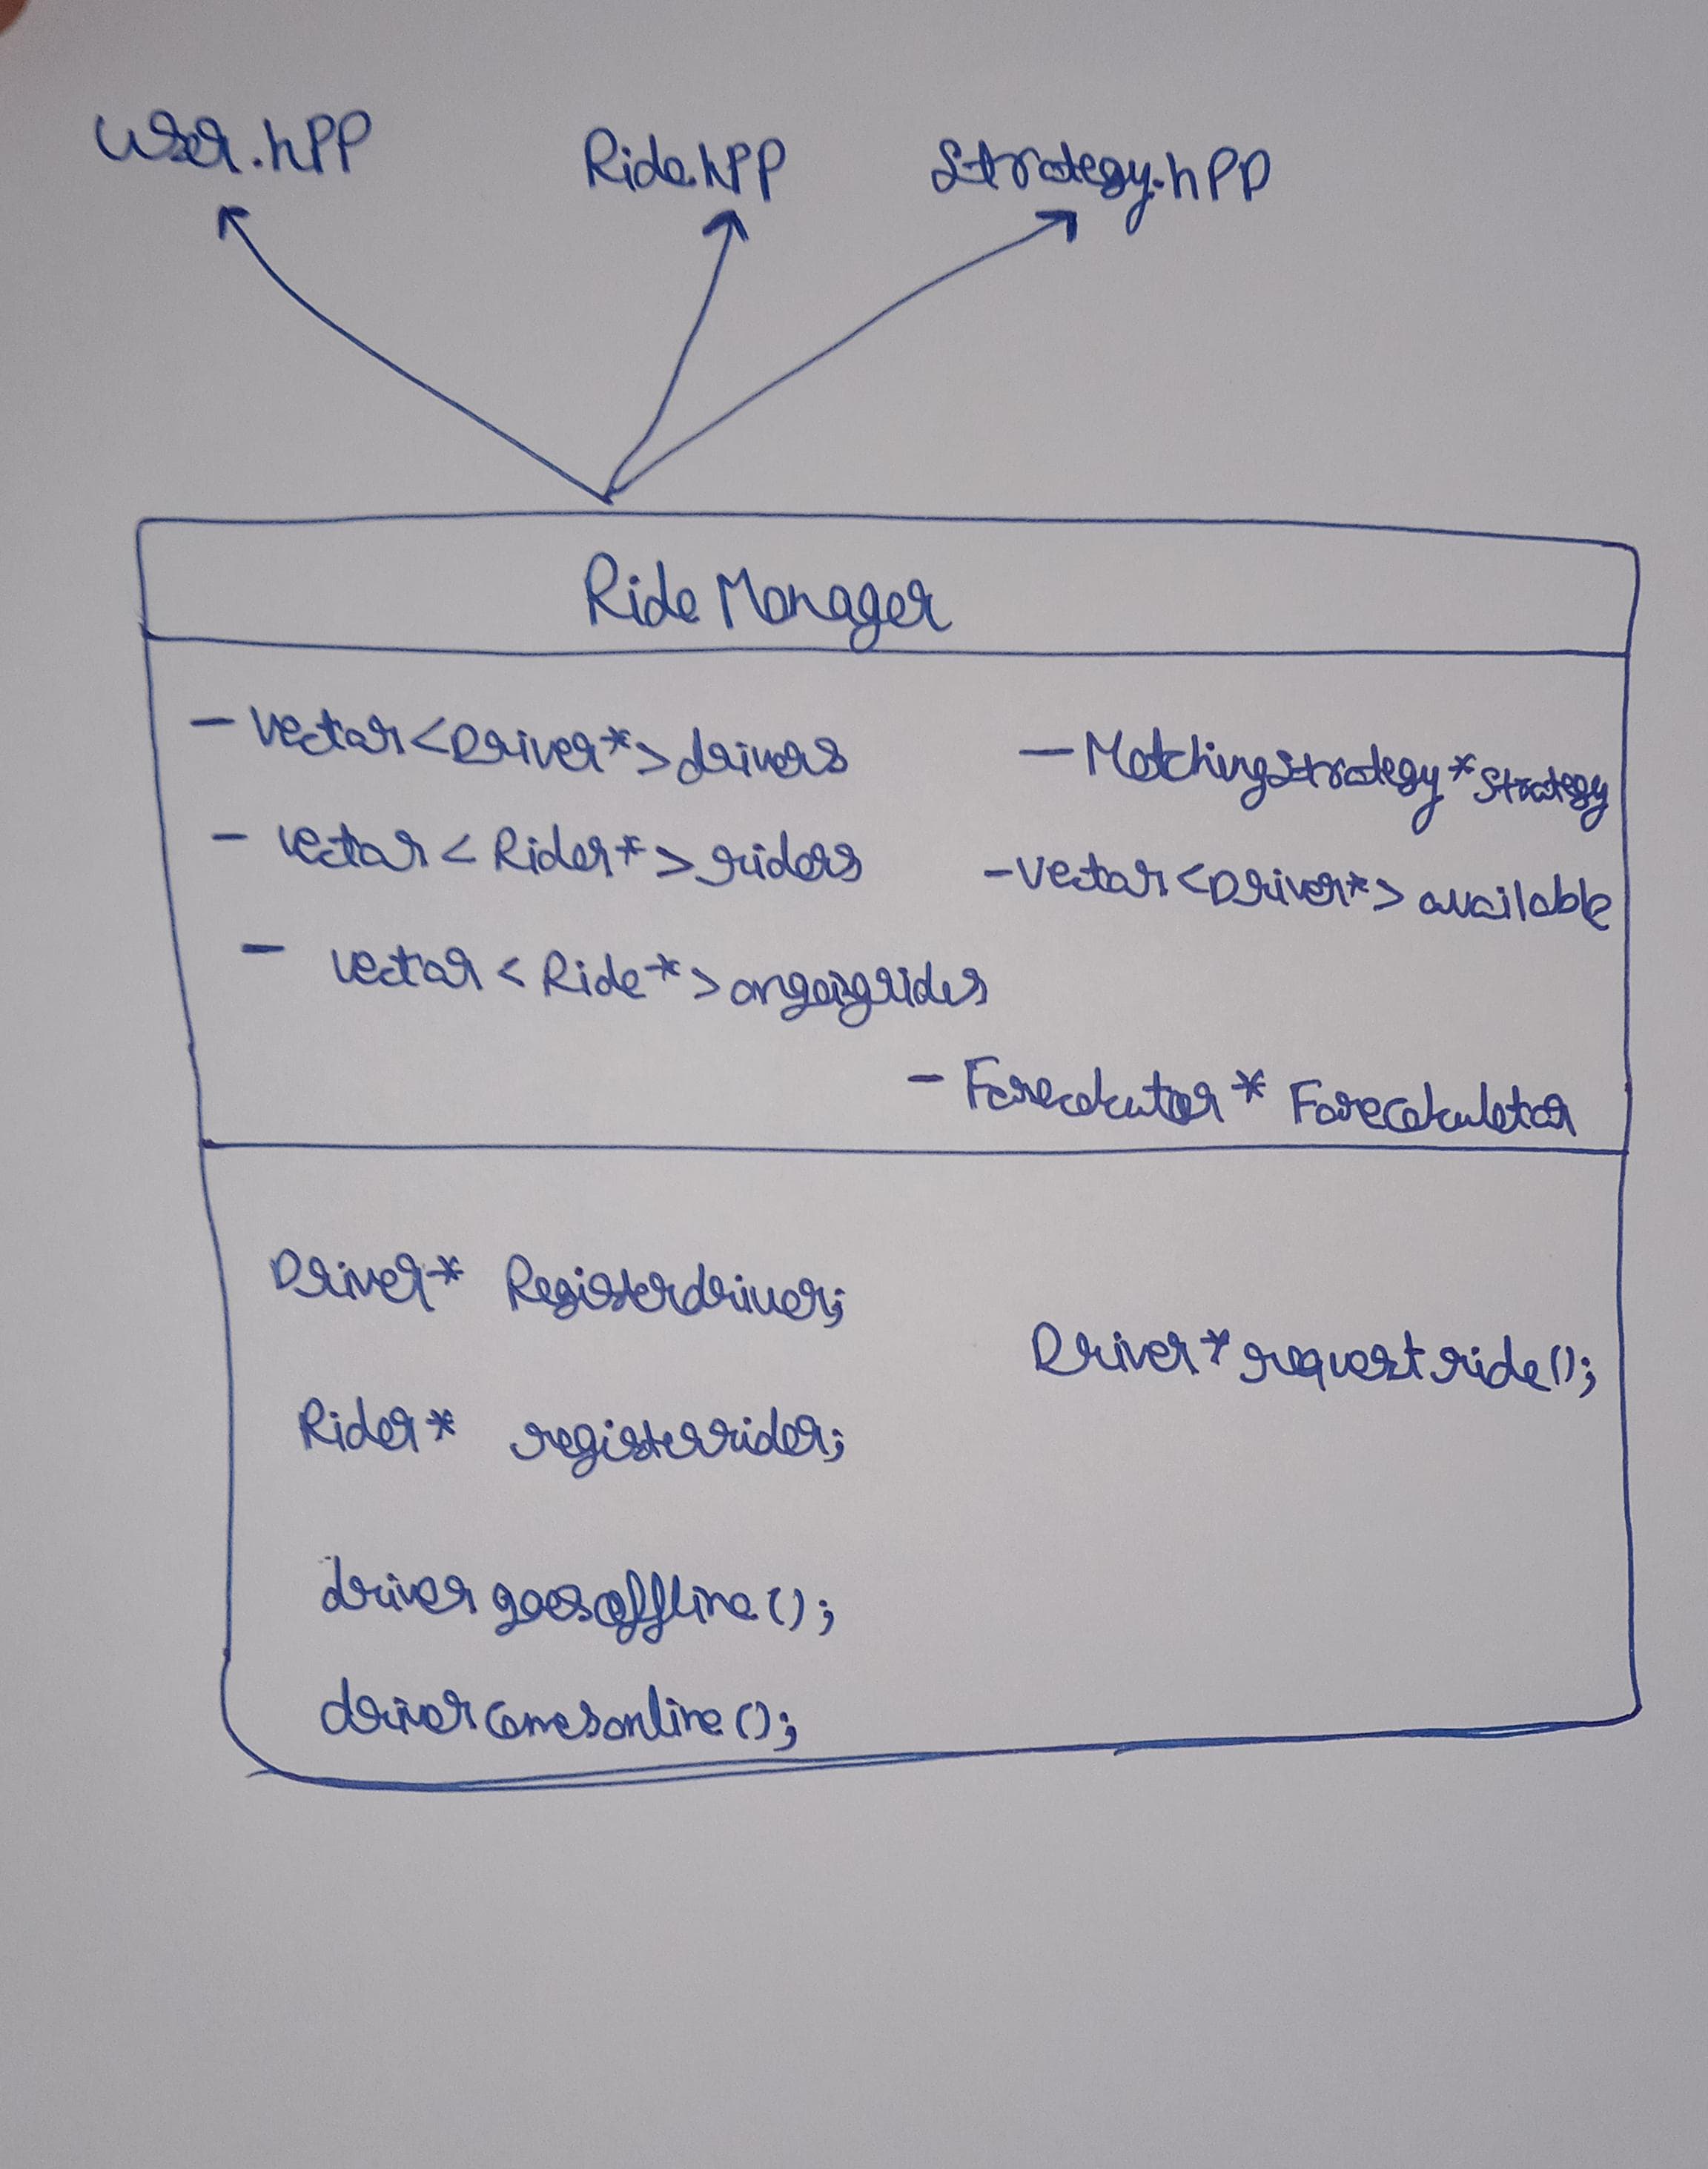 User.hPP
Ride.hPP
Strategy.hPP
Ride Manager
- vector<Driver*> drivers
- vector<Rider*> riders
- vector<Ride*> ongoingrides
- MatchingStrategy* Strategy
- vector<Driver*> available
- Farecalcutor* Farecalculator
Driver* Registerdriver;
Rider* registerrider;
driver goesoffline();
drivercomesonline();
Driver* requestride();